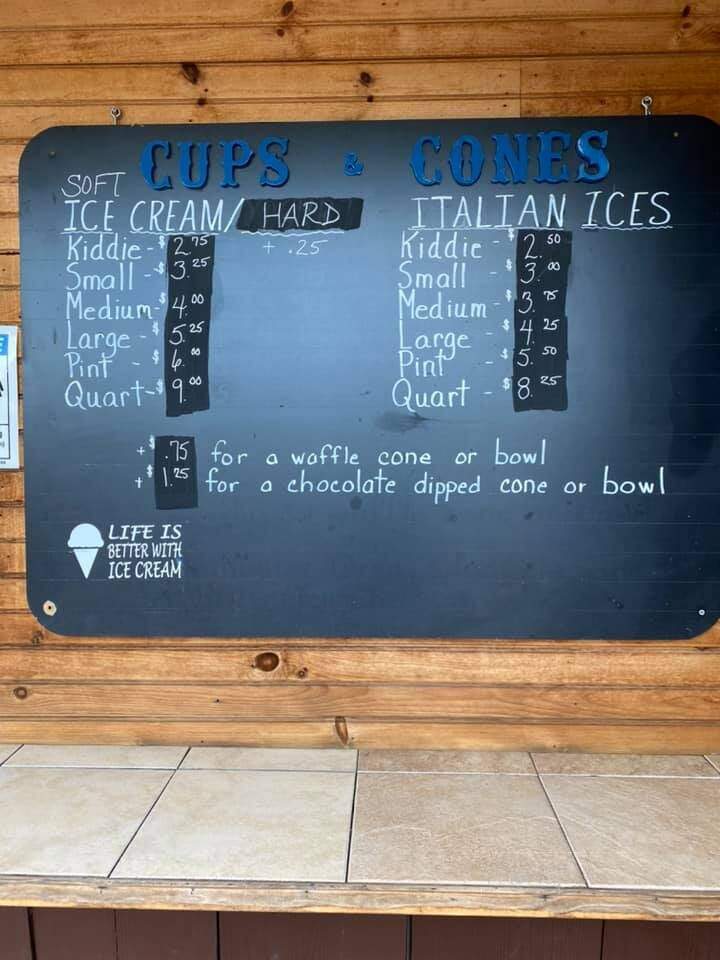 CUPS & CONES
SOFT
ICE CREAM/ HARD
+ .25
Kiddie - $2.75
Small - $3.25
Medium - $4.00
Large - $5.25
Pint - $6.00
Quart - $9.00
ITALIAN ICES
Kiddie - $2.50
Small - $3.00
Medium - $3.75
Large - $4.25
Pint - $5.50
Quart - $8.25
+ $.75 for a waffle cone or bowl
+ $1.25 for a chocolate dipped cone or bowl
LIFE IS
BETTER WITH
ICE CREAM